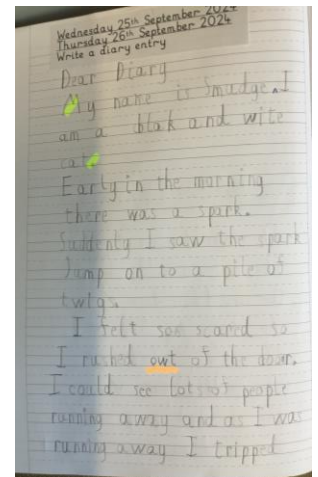 Wednesday 25th September 2024
Thursday 26th September 2024
Write a diary entry
Dear Diary
My name is Smudge. I
am a blak and wite
cat.
Early in the morning
there was a spark.
Suddenly I saw the spark
Jump on to a pile of
twigs.
I felt soo scared so
I rushed owt of the door.
I could see lots of people
running away and as I was
running away I tripped